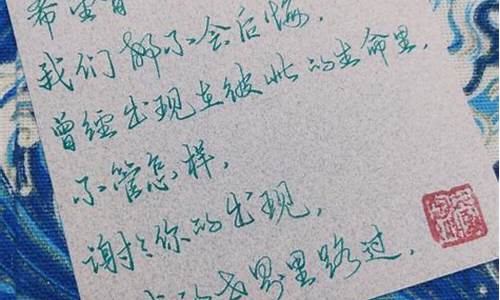 我们都不会后悔，
曾经出现在彼此的生命里，
不管怎样，
谢谢你的出现，
的世界里路过，